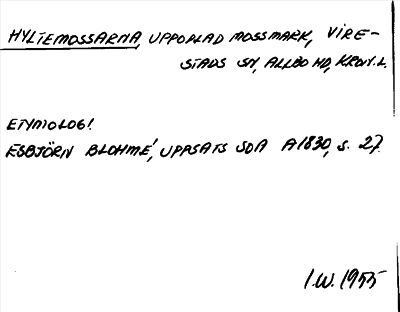 HYLTEMOSSARNA, UPPODLAD MOSSMARK, VIRE-
STADS SN, ALLBO HD, KRON. L.
ETYMOLOGI.
ESBJÖRN BLOHMÉ, UPPSATS SOA A1830, S. 27.
I.W. 1955